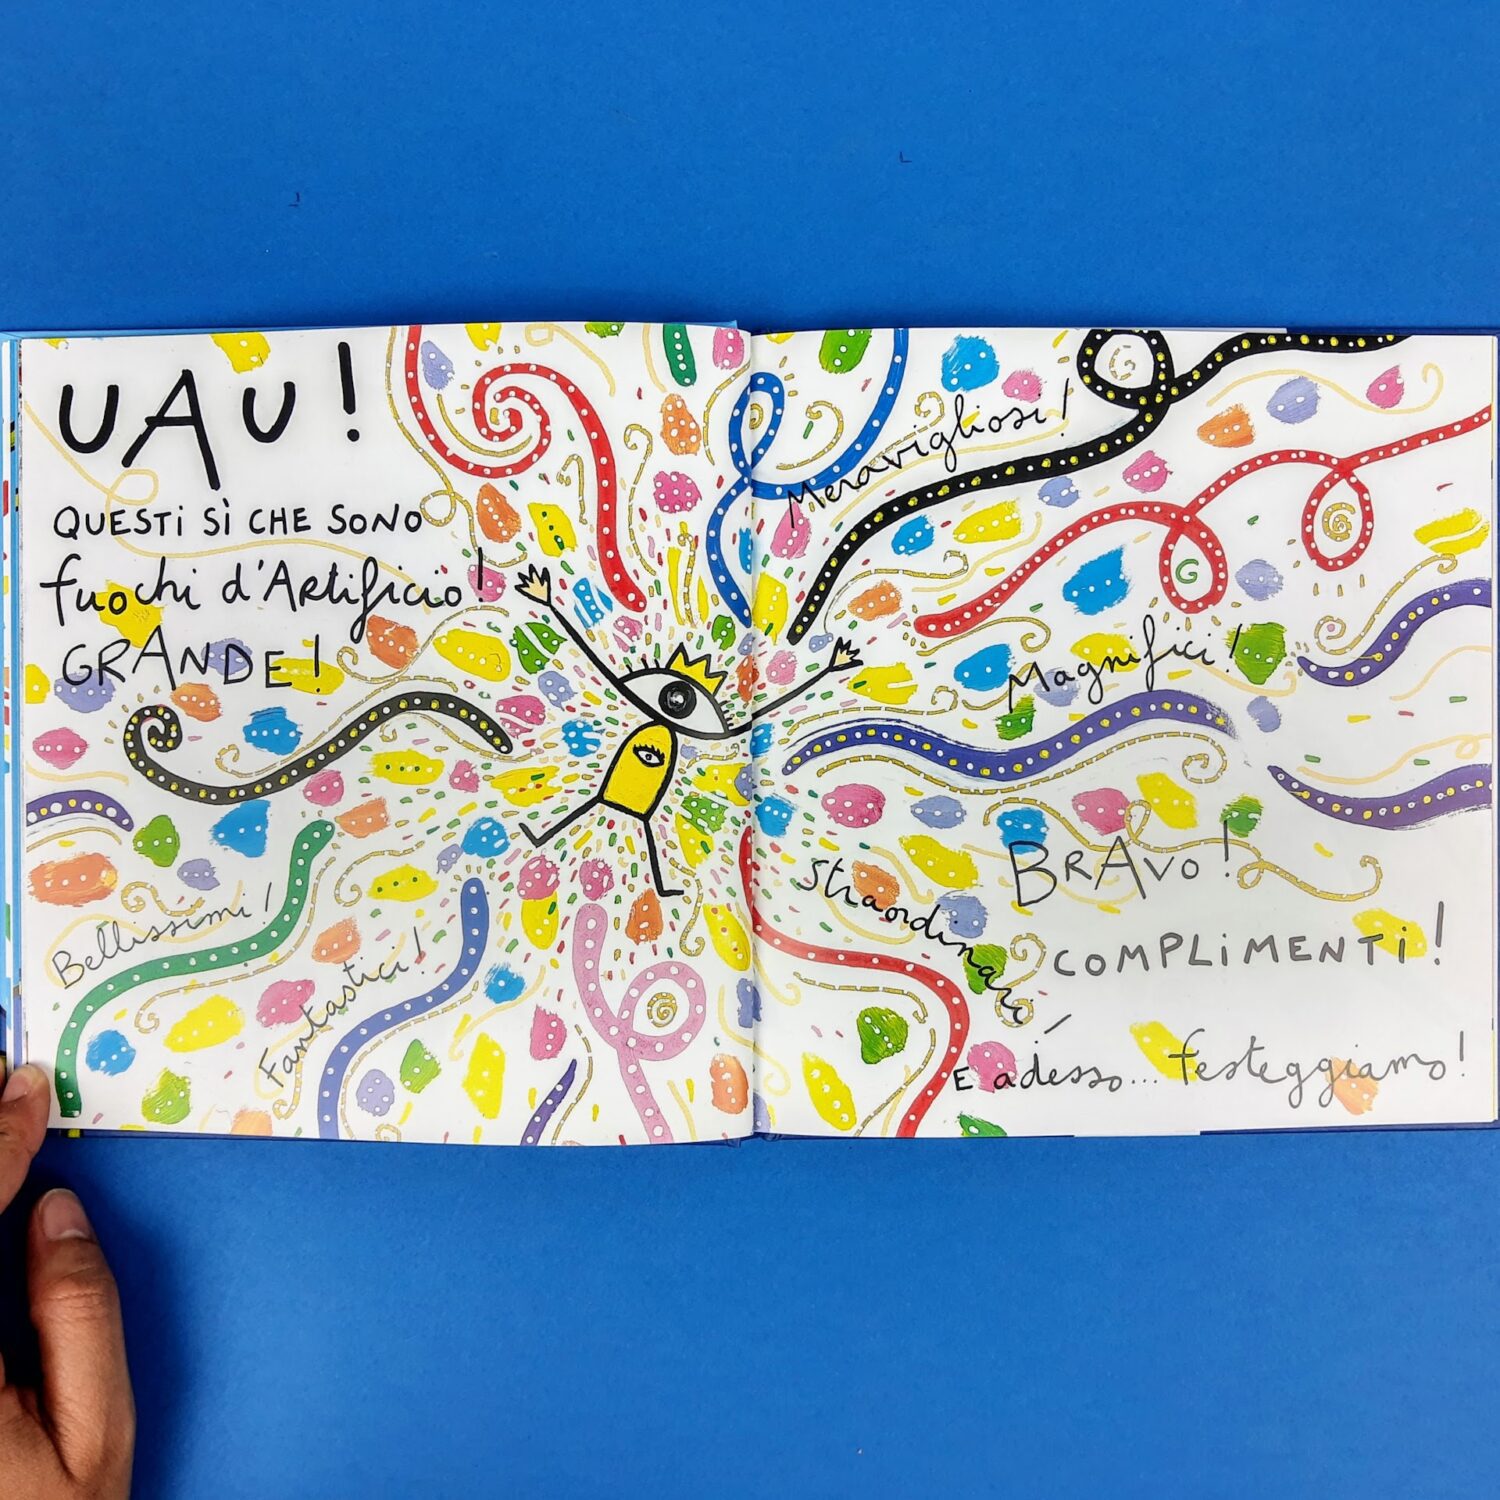 UAU!
QUESTI SÌ CHE SONO
fuochi d'Artificio!
GRANDE!
Bellissimi!
Fantastici!
Meravigliosi!
Magnifici!
Straordinari!
BRAVO!
COMPLIMENTI!
E adesso... festeggiamo!